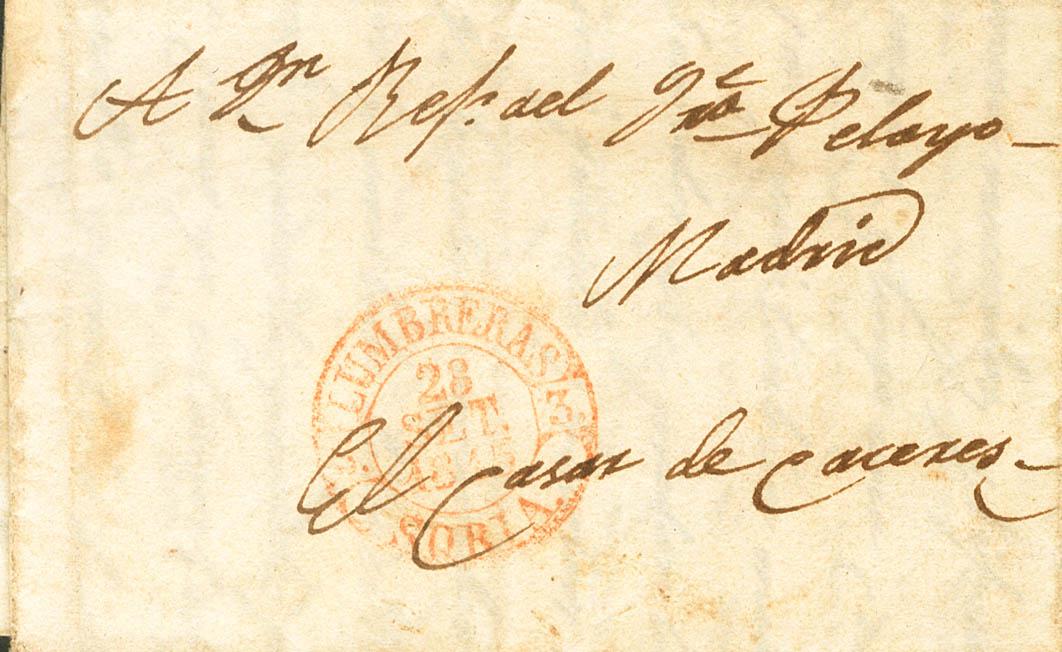 A Dn Refael Pelayo
Madrid
LUMBRERAS
28
SET.
SORIA.
El Casar de Caceres